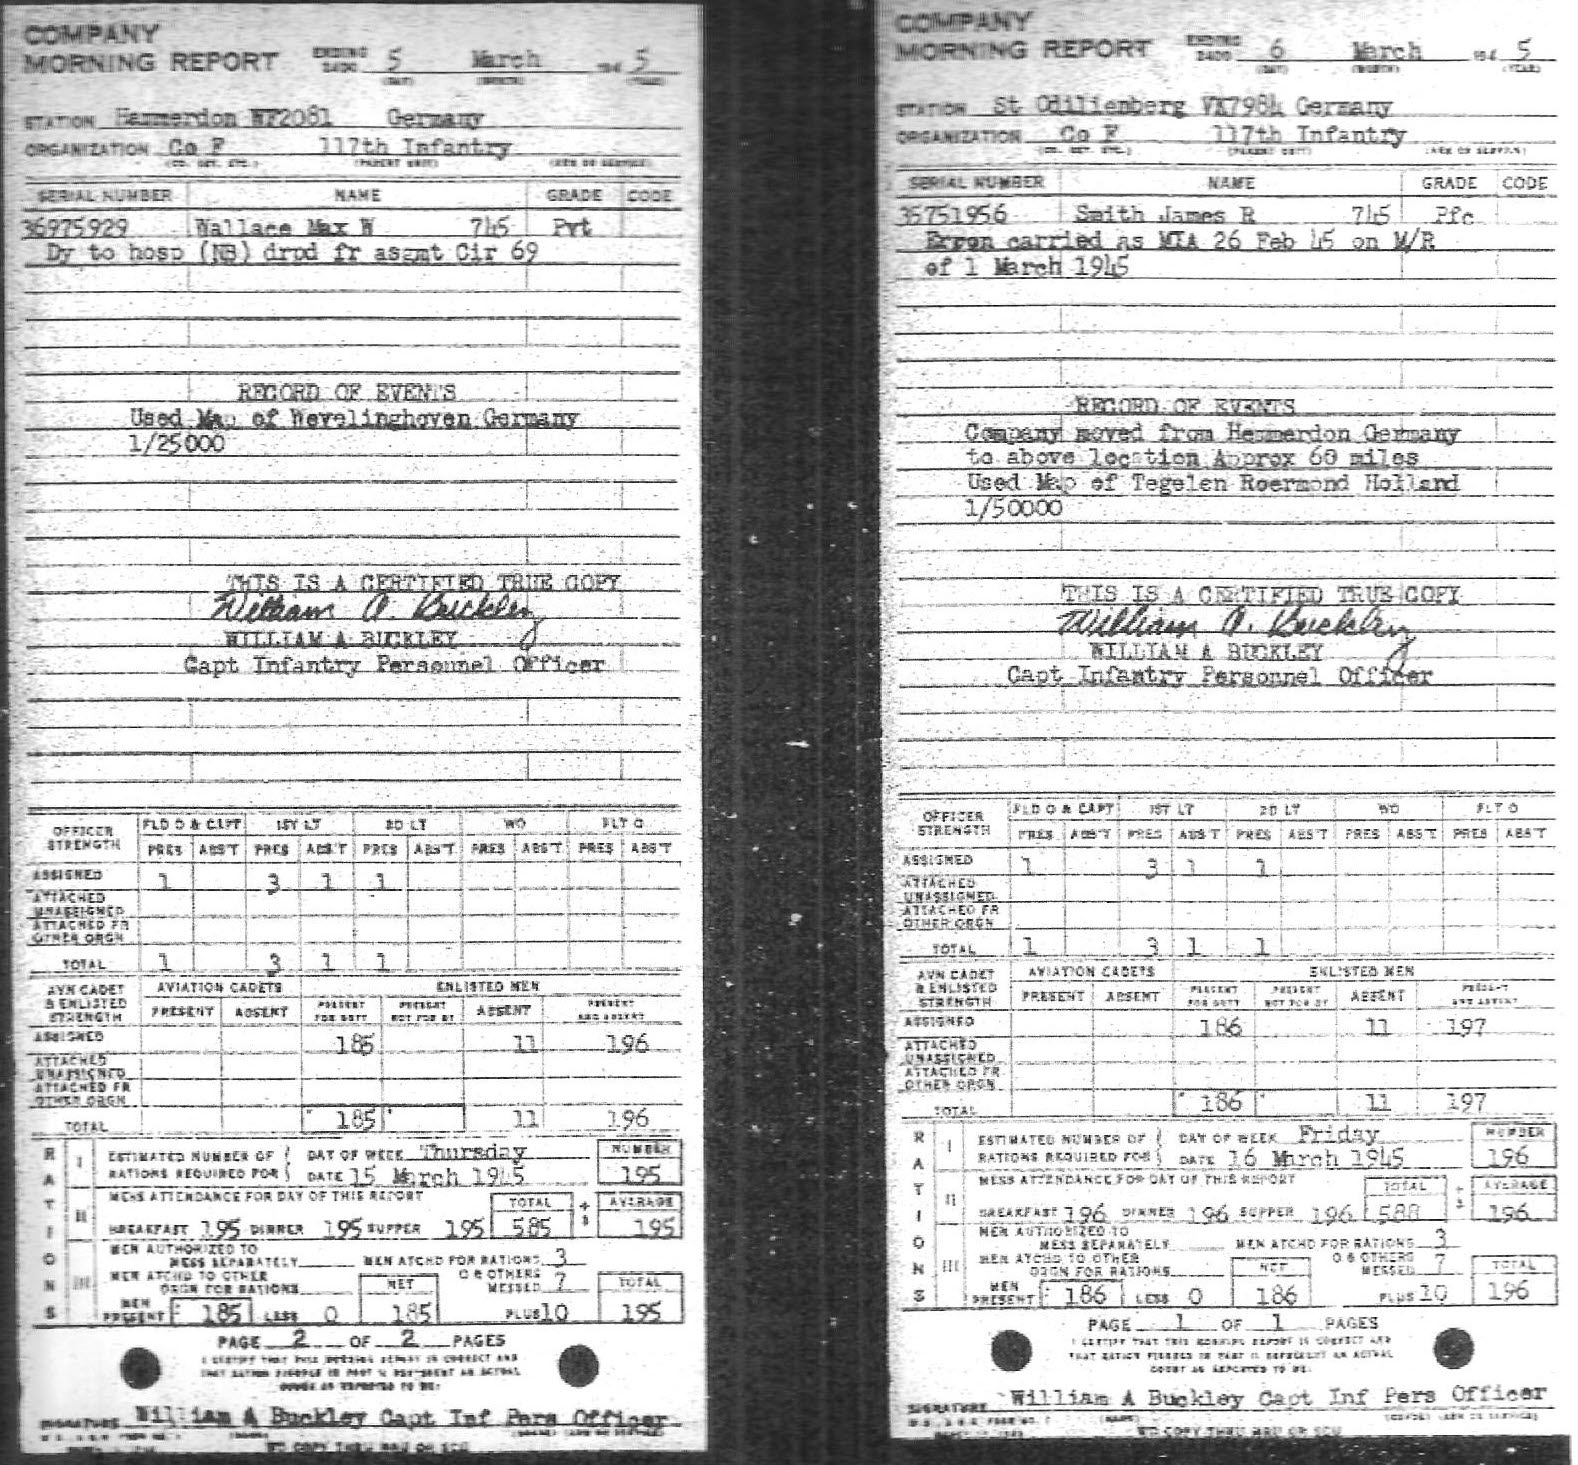 COMPANY
MORNING REPORT ENDING 2400 5 March 194 5
(DAY) (MONTH) (YEAR)
STATION Hemmerdon WF2081 Germany
ORGANIZATION Co F 117th Infantry
(CO. DET. ETC.) (PARENT UNIT) (ARM OR SERVICE)
SERIAL NUMBER NAME GRADE CODE
36975929 Wallace Max W 745 Pvt
Dy to hosp (NB) drpd fr asgmt Cir 69
RECORD OF EVENTS
Used Map of Wevelinghoven Germany
1/25000
THIS IS A CERTIFIED TRUE COPY
William A. Buckley
WILLIAM A BUCKLEY
Capt Infantry Personnel Officer
OFFICER STRENGTH FLD O & CAPT 1ST LT 2D LT WO FLT O
PRES ABS'T PRES ABS'T PRES ABS'T PRES ABS'T PRES ABS'T
ASSIGNED 1 3 1 1
ATTACHED UNASSIGNED
ATTACHED FR OTHER ORGN
TOTAL 1 3 1 1
AVN CADET & ENLISTED STRENGTH AVIATION CADETS ENLISTED MEN
PRESENT ABSENT PRESENT FOR DUTY PRESENT NOT FOR DY ABSENT PRESENT AND ABSENT
ASSIGNED 185 11 196
ATTACHED UNASSIGNED
ATTACHED FR OTHER ORGN
TOTAL 185 11 196
RATIONS
I ESTIMATED NUMBER OF RATIONS REQUIRED FOR DAY OF WEEK Thursday NUMBER
DATE 15 March 1945 195
II MESS ATTENDANCE FOR DAY OF THIS REPORT TOTAL ÷ 3 AVERAGE
BREAKFAST 195 DINNER 195 SUPPER 195 585 195
III MEN AUTHORIZED TO MESS SEPARATELY MEN ATCHD FOR RATIONS 3
MEN ATCHD TO OTHER ORGN FOR RATIONS NET O & OTHERS MESSED 7 TOTAL
MEN PRESENT 185 LESS 0 185 PLUS 10 195
PAGE 2 OF 2 PAGES
I CERTIFY THAT THIS MORNING REPORT IS CORRECT AND
THAT RATION FIGURES IN PART II REPRESENT AN ACTUAL
COUNT AS REPORTED TO ME:
SIGNATURE William A Buckley Capt Inf Pers Officer
(NAME) (GRADE) (ARM OR SERVICE)
WD COPY THRU MRU OR SCU
COMPANY
MORNING REPORT ENDING 2400 6 March 194 5
(DAY) (MONTH) (YEAR)
STATION St Odilienberg VK7984 Germany
ORGANIZATION Co F 117th Infantry
(CO. DET. ETC.) (PARENT UNIT) (ARM OR SERVICE)
SERIAL NUMBER NAME GRADE CODE
35751956 Smith James R 745 Pfc
Erron carried as MIA 26 Feb 45 on M/R
of 1 March 1945
RECORD OF EVENTS
Company moved from Hemmerdon Germany
to above location Approx 60 miles
Used Map of Tegelen Roermond Holland
1/50000
THIS IS A CERTIFIED TRUE COPY
William A. Buckley
WILLIAM A BUCKLEY
Capt Infantry Personnel Officer
OFFICER STRENGTH FLD O & CAPT 1ST LT 2D LT WO FLT O
PRES ABS'T PRES ABS'T PRES ABS'T PRES ABS'T PRES ABS'T
ASSIGNED 1 3 1 1
ATTACHED UNASSIGNED
ATTACHED FR OTHER ORGN
TOTAL 1 3 1 1
AVN CADET & ENLISTED STRENGTH AVIATION CADETS ENLISTED MEN
PRESENT ABSENT PRESENT FOR DUTY PRESENT NOT FOR DY ABSENT PRESENT AND ABSENT
ASSIGNED 186 11 197
ATTACHED UNASSIGNED
ATTACHED FR OTHER ORGN
TOTAL 186 11 197
RATIONS
I ESTIMATED NUMBER OF RATIONS REQUIRED FOR DAY OF WEEK Friday NUMBER
DATE 16 March 1945 196
II MESS ATTENDANCE FOR DAY OF THIS REPORT TOTAL ÷ 3 AVERAGE
BREAKFAST 196 DINNER 196 SUPPER 196 588 196
III MEN AUTHORIZED TO MESS SEPARATELY MEN ATCHD FOR RATIONS 3
MEN ATCHD TO OTHER ORGN FOR RATIONS NET O & OTHERS MESSED 7 TOTAL
MEN PRESENT 186 LESS 0 186 PLUS 10 196
PAGE 1 OF 1 PAGES
I CERTIFY THAT THIS MORNING REPORT IS CORRECT AND
THAT RATION FIGURES IN PART II REPRESENT AN ACTUAL
COUNT AS REPORTED TO ME:
SIGNATURE William A Buckley Capt Inf Pers Officer
(NAME) (GRADE) (ARM OR SERVICE)
WD COPY THRU MRU OR SCU